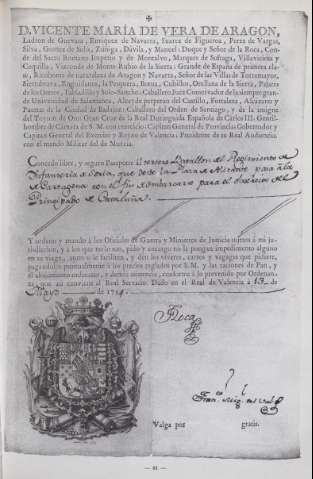 D. VICENTE MARÍA DE VERA DE ARAGON,
Ladron de Guevara, Enriquez de Navarra, Suarez de Figueroa, Perez de Vargas,
Silva, Cortés de Solis, Zuñiga, Dávila, y Manuel; Duque y Señor de la Roca, Conde
del Sacro Romano Imperio y de Montalvo, Marques de Sofraga, Villaviciosa y
Coquilla, Vizconde de Monte-Rubio de la Sierra; Grande de España de primera clase
, Ricohome de naturaleza de Aragon y Navarra, Señor de las Villas de Torremayor,
Sierrabrava, Anguijuana, la Pesquera, Botoa,
de los Cestos, Tabladillas y Soto-Sancho; Caballero
de Universidad de Salamanca, Alfer de perpetuo del Castillo, Fortaleza, Alcazares y
Puertas de la Ciudad de Badajoz; Caballero del Orden de Santiago, y de la insigne
del Toyson de Oro, Gran Cruz de la Real Distinguida Española de Carlos III; Gentilhombre
de Cámara de S. M. con exercicio; Capitan General de Provincias; Gobernador y
Capitan General del Exercito y Reyno de Valencia; Presidente de su Real Audiencia
con el mando Militar del de Murcia.
Concedo libre, y seguro Pasaporte al tercero Batallon del Regimiento de
Infanteria de Soria, que desde la Plaza de Alicante pasa á la
de Cartagena con el fin de embarcarse para el Exercito del
Principado de Cataluña.
Y ordeno y mando á los Oficiales de Guerra y Ministros de Justicia sujetos á mi jurisdiccion,
y á los que no lo son, pido y encargo no le pongan impedimento alguno
en su viage, antes sí le faciliten, y den los víveres, carros y vagages que pidiere,
pagándolos puntualmente á los precios reglados por S. M. y las raciones de Pan, y
el alojamiento ordinario, y demas asistencia, conforme á lo prevenido por Ordenanzas
, que así conviene al Real Servicio. Dado en el Real de Valencia á 13 de
Mayo de 1794.
Roca
Valga por gratis.
— 91 —